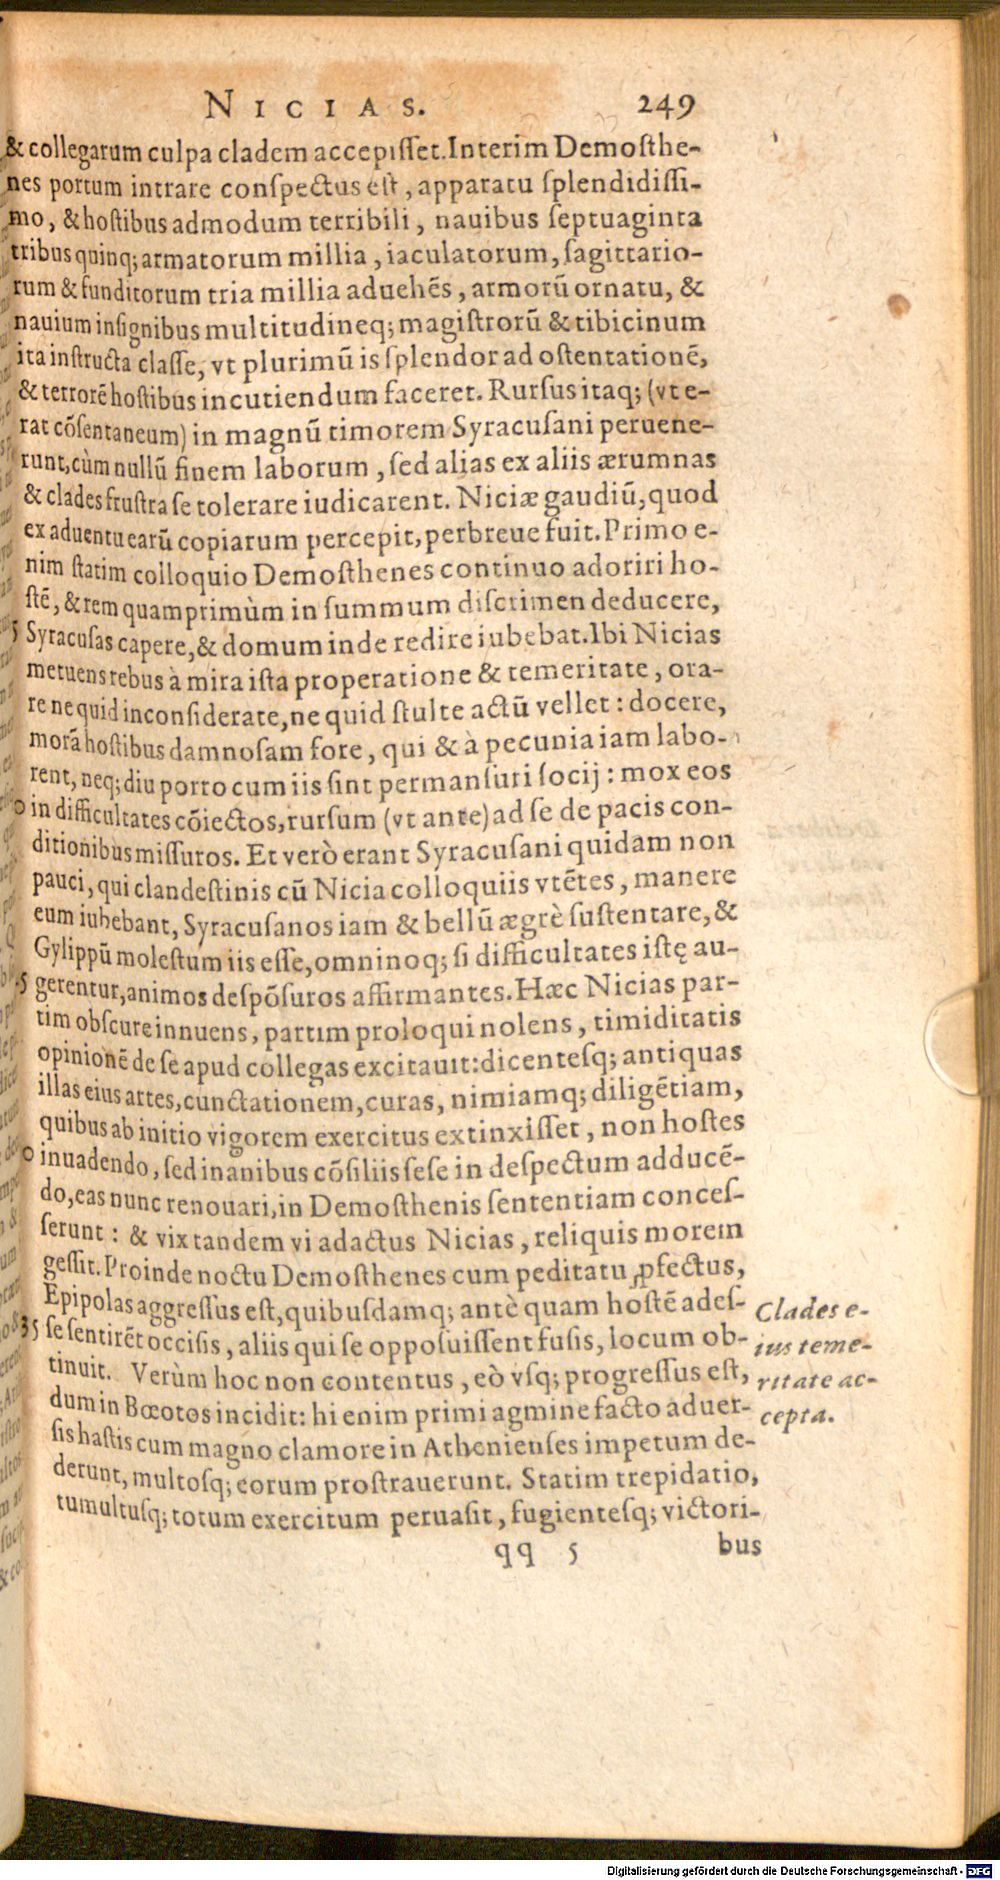 NICIAS. 249
& collegarum culpa cladem accepisset. Interim Demosthe-
nes portum intrare conspectus est, apparatu splendidissi-
mo, & hostibus admodum terribili, nauibus septuaginta
tribus quinq; armatorum millia, iaculatorum, sagittario-
rum & funditorum tria millia aduehẽs, armorũ ornatu, &
nauium insignibus multitudineq; magistrorũ & tibicinum
ita instructa classe, vt plurimũ is splendor ad ostentationẽ,
& terrorẽ hostibus incutiendum faceret. Rursus itaq; (vt e-
rat cõsentaneum) in magnũ timorem Syracusani peruene-
runt, cùm nullũ finem laborum, sed alias ex aliis ærumnas
& clades frustra se tolerare iudicarent. Niciæ gaudiũ, quod
ex aduentu earũ copiarum percepit, perbreue fuit. Primo e-
nim statim colloquio Demosthenes continuo adoriri ho-
stẽ, & rem quamprimùm in summum discrimen deducere,
5 Syracusas capere, & domum inde redire iubebat. Ibi Nicias
metuens rebus à mira ista properatione & temeritate, ora-
re ne quid inconsiderate, ne quid stulte actũ vellet: docere,
morã hostibus damnosam fore, qui & à pecunia iam labo-
rent, neq; diu porro cum iis sint permansuri socij: mox eos
0 in difficultates cõiectos, rursum (vt ante) ad se de pacis con-
ditionibus missuros. Et verò erant Syracusani quidam non
pauci, qui clandestinis cũ Nicia colloquiis vtẽtes, manere
eum iubebant, Syracusanos iam & bellũ ægrè sustentare, &
Gylippũ molestum iis esse, omninoq; si difficultates istę au-
5 gerentur, animos despõsuros affirmantes. Hæc Nicias par-
tim obscure innuens, partim proloqui nolens, timiditatis
opinionẽ de se apud collegas excitauit: dicentesq; antiquas
illas eius artes, cunctationem, curas, nimiamq; diligẽtiam,
quibus ab initio vigorem exercitus extinxisset, non hostes
0 inuadendo, sed inanibus cõsiliis sese in despectum adducẽ-
do, eas nunc renouari, in Demosthenis sententiam conces-
serunt: & vix tandem vi adactus Nicias, reliquis morem
gessit. Proinde noctu Demosthenes cum peditatu ꝓfectus,
Epipolas aggressus est, quibusdamq; antè quam hostẽ ades-
35 se sentirẽt occisis, aliis qui se opposuissent fusis, locum ob-
tinuit. Verùm hoc non contentus, eò vsq; progressus est,
dum in Bœotos incidit: hi enim primi agmine facto aduer-
sis hastis cum magno clamore in Athenienses impetum de-
derunt, multosq; eorum prostrauerunt. Statim trepidatio,
tumultusq; totum exercitum peruasit, fugientesq; victori-
qq 5 bus
Clades e-
ius teme-
ritate ac-
cepta.
Digitalisierung gefördert durch die Deutsche Forschungsgemeinschaft - DFG